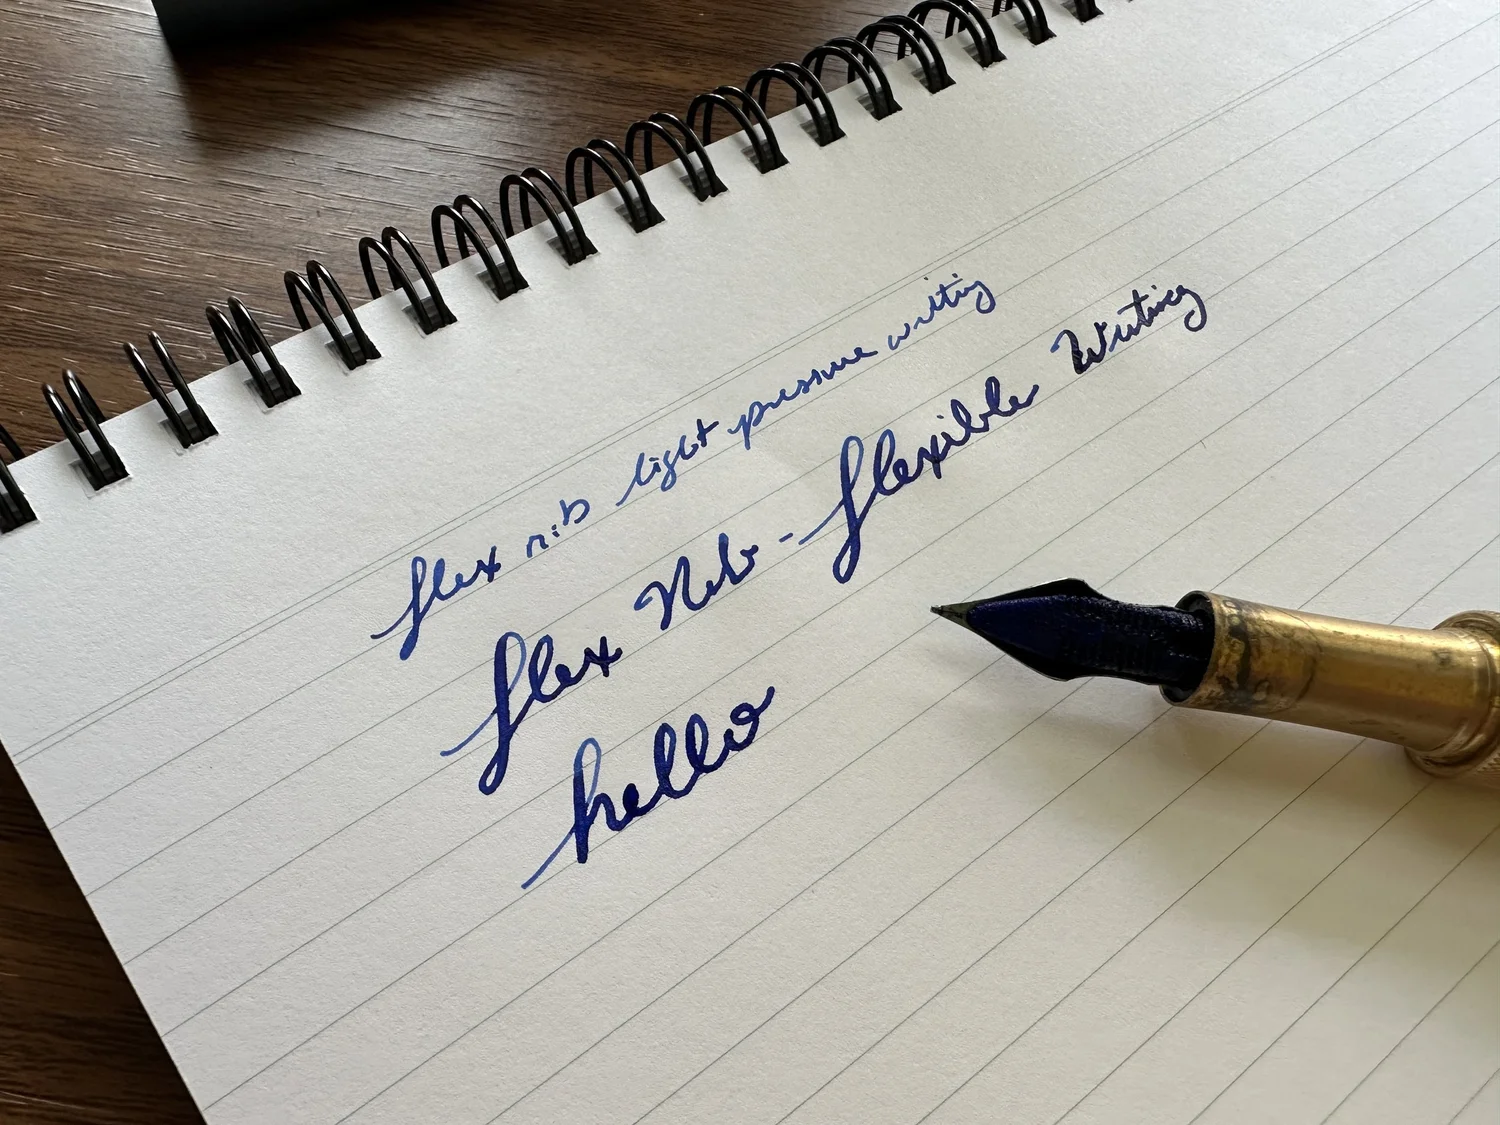 flex nib light pressure writing
flex Nib - flexible Writing
hello